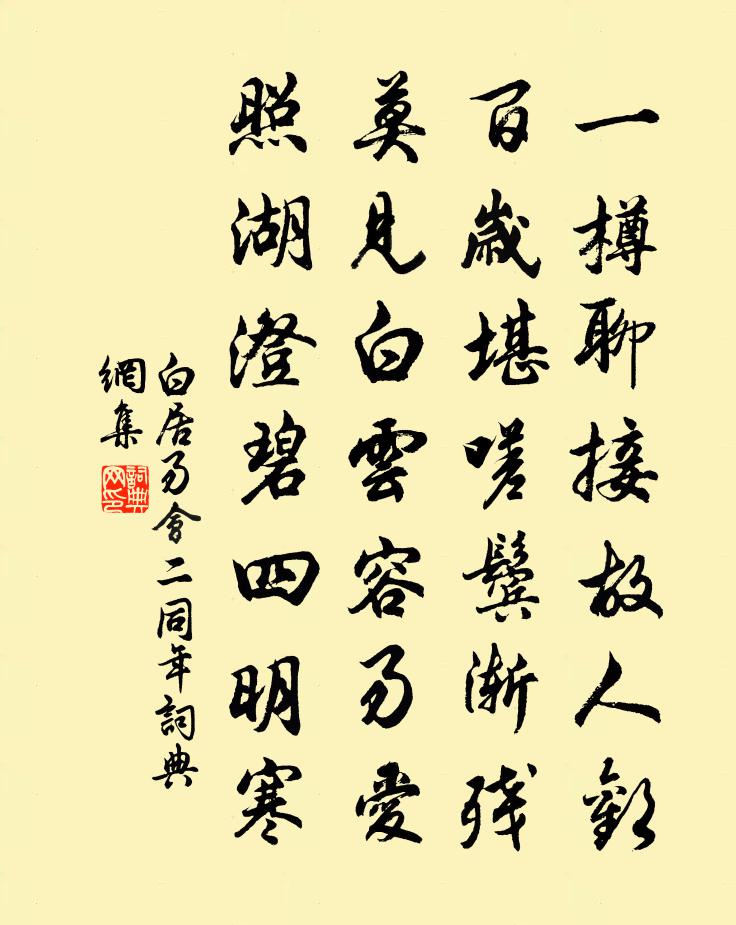 一樽聊接故人歡
百歲堪嗟鬢漸殘
莫見白雲容易愛
照湖澄碧四明寒
白居易會二同年詞典
網集
詞典網印